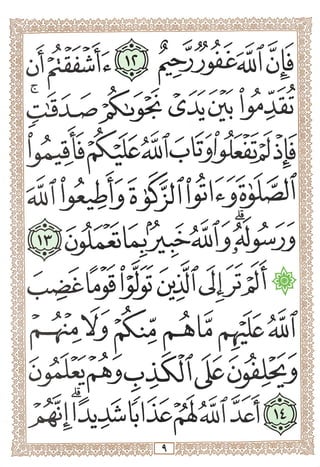 فَإِنَّ ٱللَّهَ غَفُورٌ رَّحِيمٌ ١٢ ءَأَشْفَقْتُمْ أَن
تُقَدِّمُوا۟ بَيْنَ يَدَىْ نَجْوَىٰكُمْ صَدَقَٰتٍ ۚ
فَإِذْ لَمْ تَفْعَلُوا۟ وَتَابَ ٱللَّهُ عَلَيْكُمْ فَأَقِيمُوا۟
ٱلصَّلَوٰةَ وَءَاتُوا۟ ٱلزَّكَوٰةَ وَأَطِيعُوا۟ ٱللَّهَ
وَرَسُولَهُۥ ۚ وَٱللَّهُ خَبِيرٌۢ بِمَا تَعْمَلُونَ ١٣
۞ أَلَمْ تَرَ إِلَى ٱلَّذِينَ تَوَلَّوْا۟ قَوْمًا غَضِبَ
ٱللَّهُ عَلَيْهِم مَّا هُم مِّنكُمْ وَلَا مِنْهُمْ
وَيَحْلِفُونَ عَلَى ٱلْكَذِبِ وَهُمْ يَعْلَمُونَ
١٤ أَعَدَّ ٱللَّهُ لَهُمْ عَذَابًا شَدِيدًا ۖ إِنَّهُمْ
٩